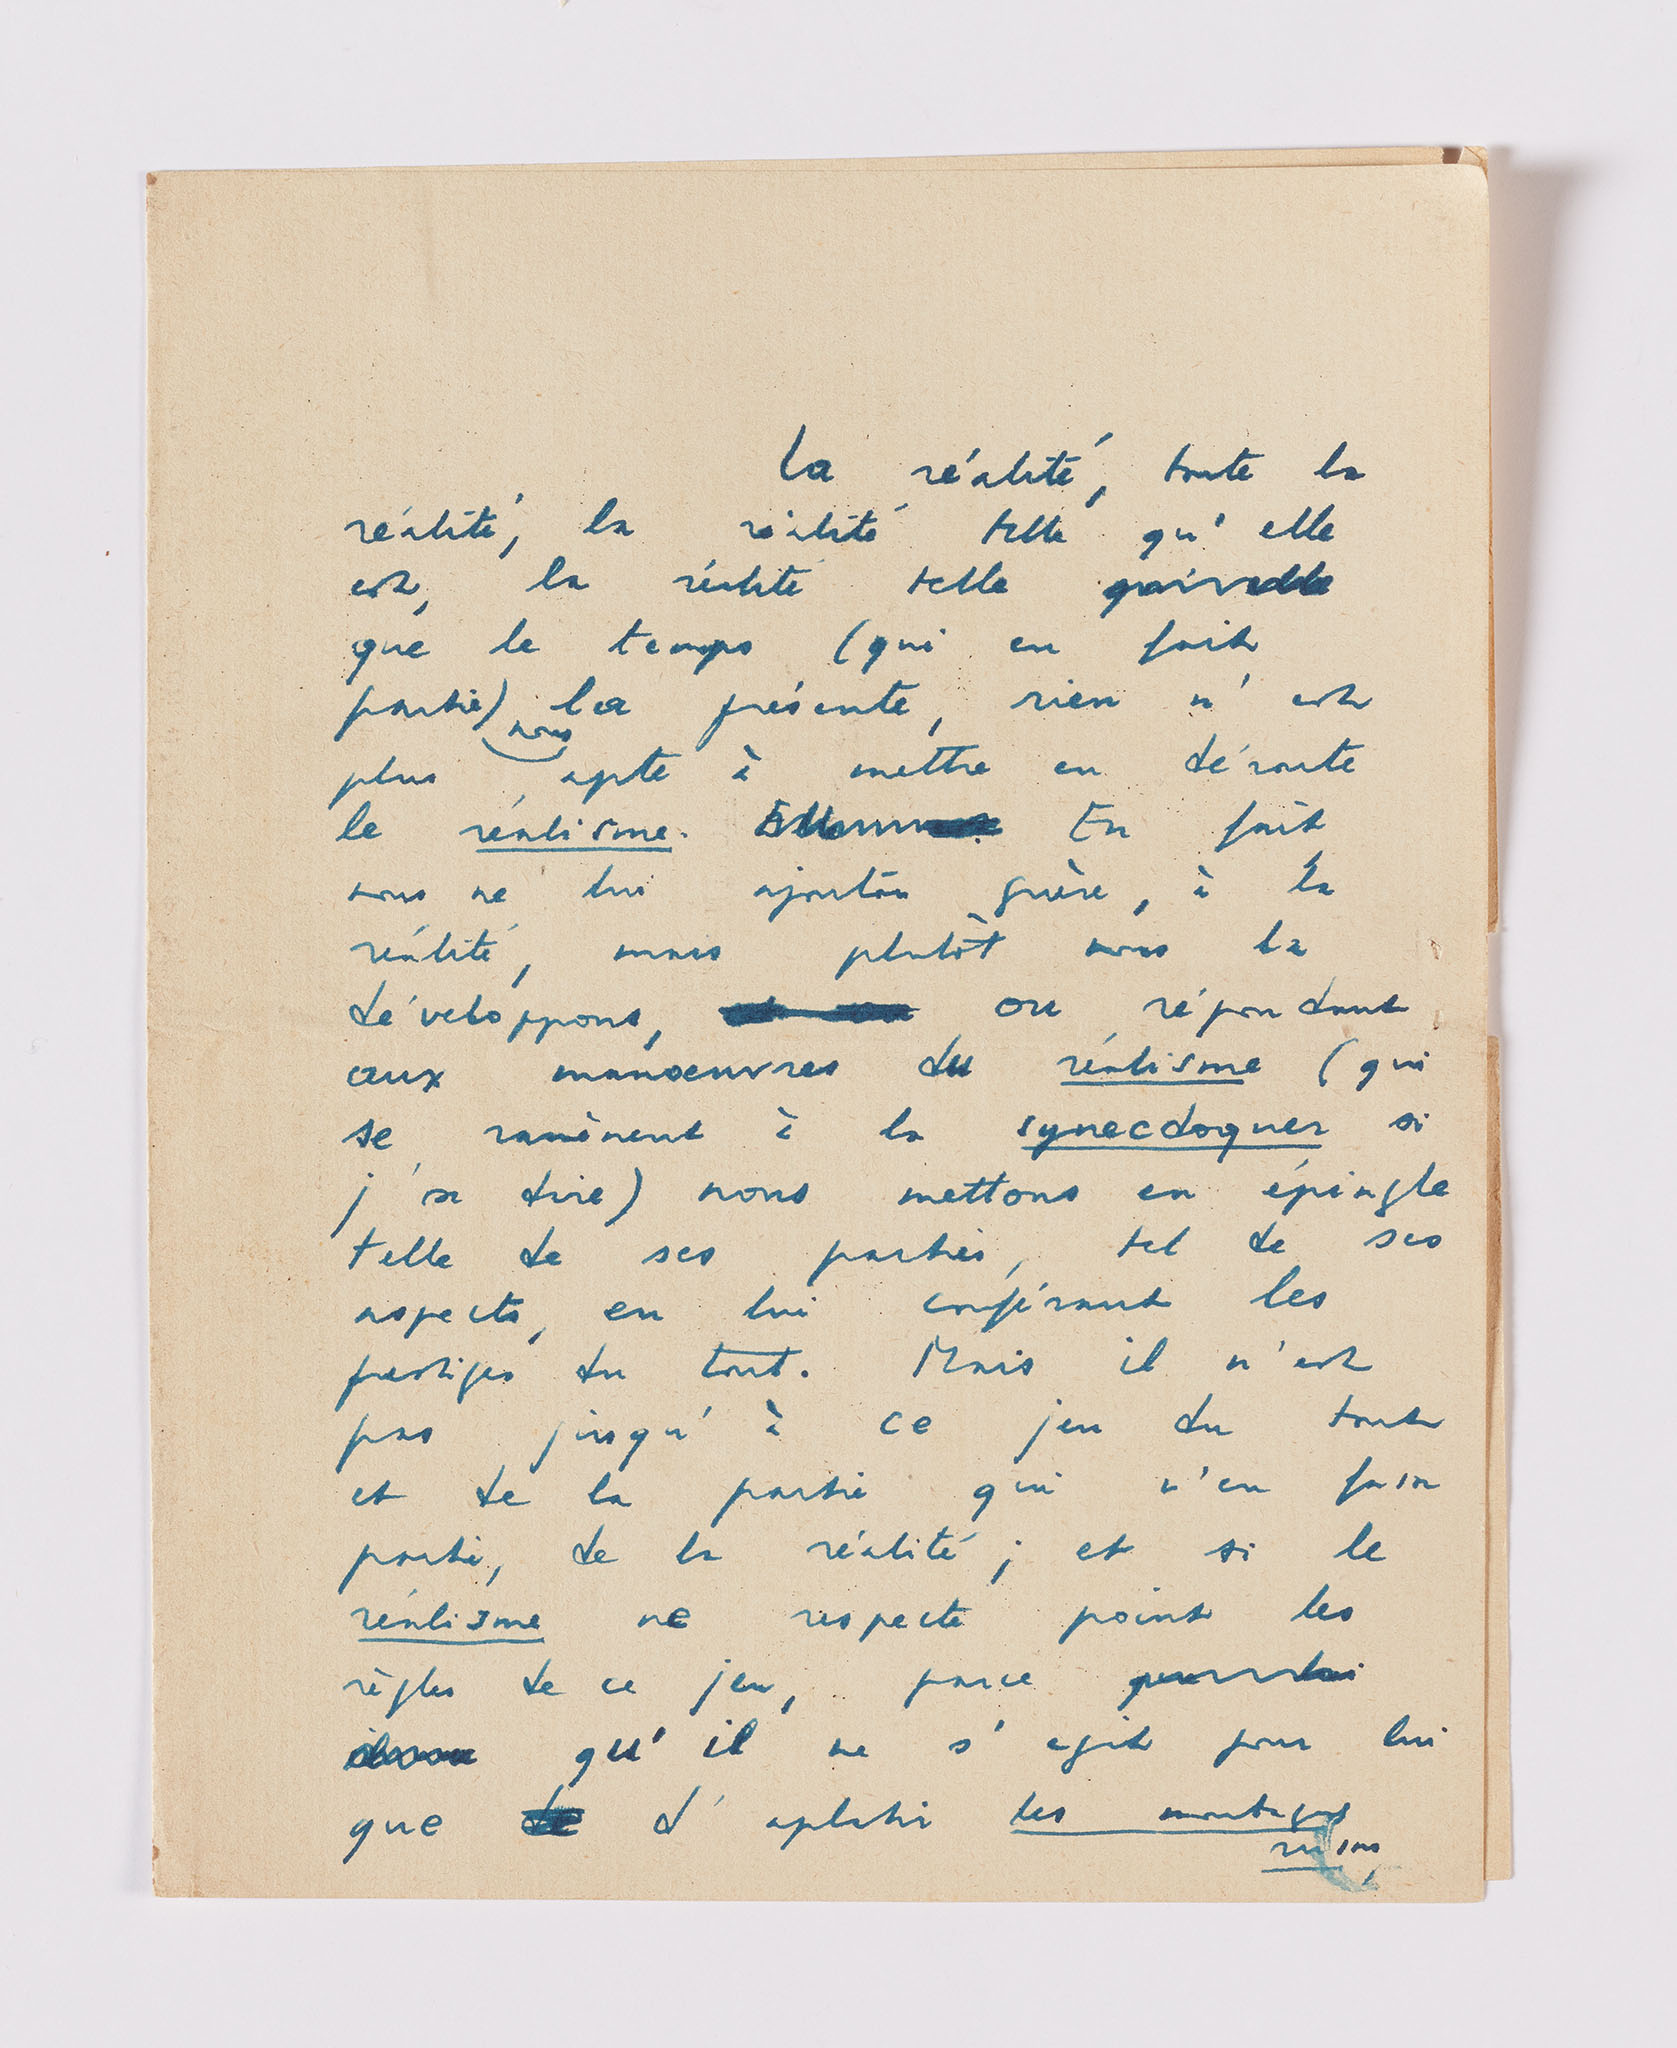 La réalité, toute la
réalité, la réalité telle qu'elle
est, la réalité telle
que le temps (qui en fait
partie) la présente, rien n'est
nous
plus apte à mettre en déroute
le réalisme. En fait
nous ne lui ajoutons guère, à la
réalité, mais plutôt nous la
développons, ou répondant
aux manœuvres du réalisme (qui
se ramènent à la synecdoques si
j'ose dire) nous mettons en épingle
telle de ses parties, tel de ses
aspects, en lui conférant les
prestiges du tout. Mais il n'est
pas jusqu'à ce jeu du tout
et de la partie qui n'en fasse
partie, de la réalité ; et si le
réalisme ne respecte point les
règles de ce jeu, parce
qu'il ne s'agit pour lui
que d'aplatir les montagnes